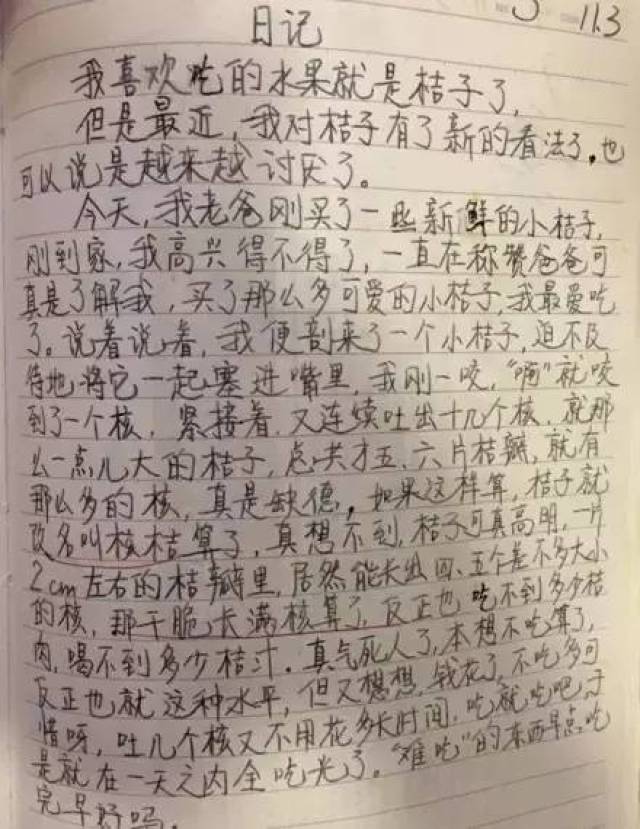 11.3
日记
我喜欢吃的水果就是桔子了，
但是最近，我对桔子有了新的看法了，也
可以说是越来越讨厌了。
今天，我老爸刚买了一些新鲜的小桔子，
刚到家，我高兴得不得了，一直在称赞爸爸可
真是了解我，买了那么多可爱的小桔子，我最爱吃
了。说着说着，我便剖来了一个小桔子，迫不及
待地将它一起塞进嘴里，我刚一咬，“嘣”就咬
到了一个核，紧接着，又连续吐出十几个核，就那
么一点儿大的桔子，总共才五、六片桔瓣，就有
那么多的核，真是缺德，如果这样算，桔子就
改名叫核桔算了，真想不到，桔子可真高明，一片
2cm左右的桔瓣里，居然能长出四、五个差不多大小
的核，那干脆长满核算了，反正也吃不到多少桔
肉，喝不到多少桔汁。真气死人了，本想不吃算了，
反正也就这种水平，但又想想，钱花了，不吃多可
惜呀，吐几个核又不用花多长时间，吃就吃吧，于
是就在一天之内全吃光了。“难吃”的东西早点吃
完早好吗。